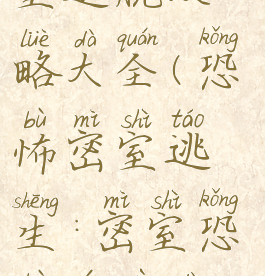 lüè dà quán kǒng
略大全(恐
bù mì shì táo
怖密室逃
shēng mì shì kǒng
生:密室恐